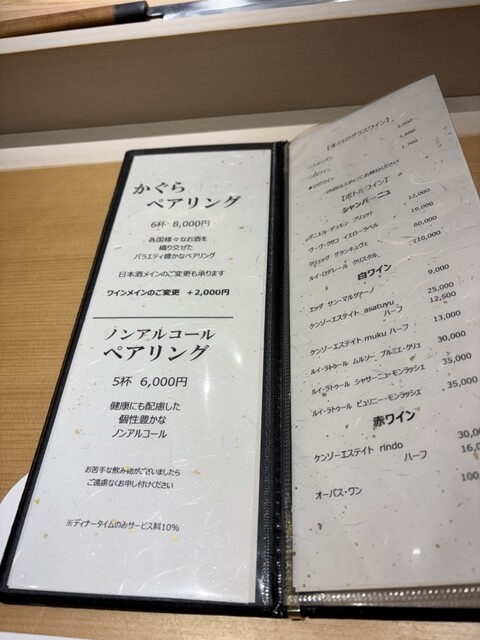 かぐら
ペアリング
6杯 8,000円
各国様々なお酒を
織り交ぜた
バラエティ豊かなペアリング
日本酒メインのご変更も承ります
ワインメインのご変更 +2,000円
ノンアルコール
ペアリング
5杯 6,000円
健康にも配慮した
個性豊かな
ノンアルコール
お苦手な飲み物がございましたら
ご遠慮なくお申し付けください
※ディナータイムのみサービス料10%
【本日のグラスワイン】
2,000
1,800
1,700
【ボトルワイン】
シャンパーニュ
ダニエル・デュモン ブリュット 12,000
ヴーヴ・クリコ イエローラベル 19,000
クリュッグ グランキュヴェ 60,000
ルイ・ロデレール クリスタル 110,000
白ワイン
エッダ サン・マルツァーノ 9,000
ケンゾーエステイト asatuyu 25,000
ハーフ 12,500
ケンゾーエステイト muku ハーフ 13,000
ルイ・ラトゥール ムルソー プルミエ・クリュ 30,000
ルイ・ラトゥール シャサーニュ・モンラッシェ 35,000
ルイ・ラトゥール ピュリニー・モンラッシェ 35,000
赤ワイン
ケンゾーエステイト rindo 30,0
ハーフ 16,0
オーパス・ワン 100